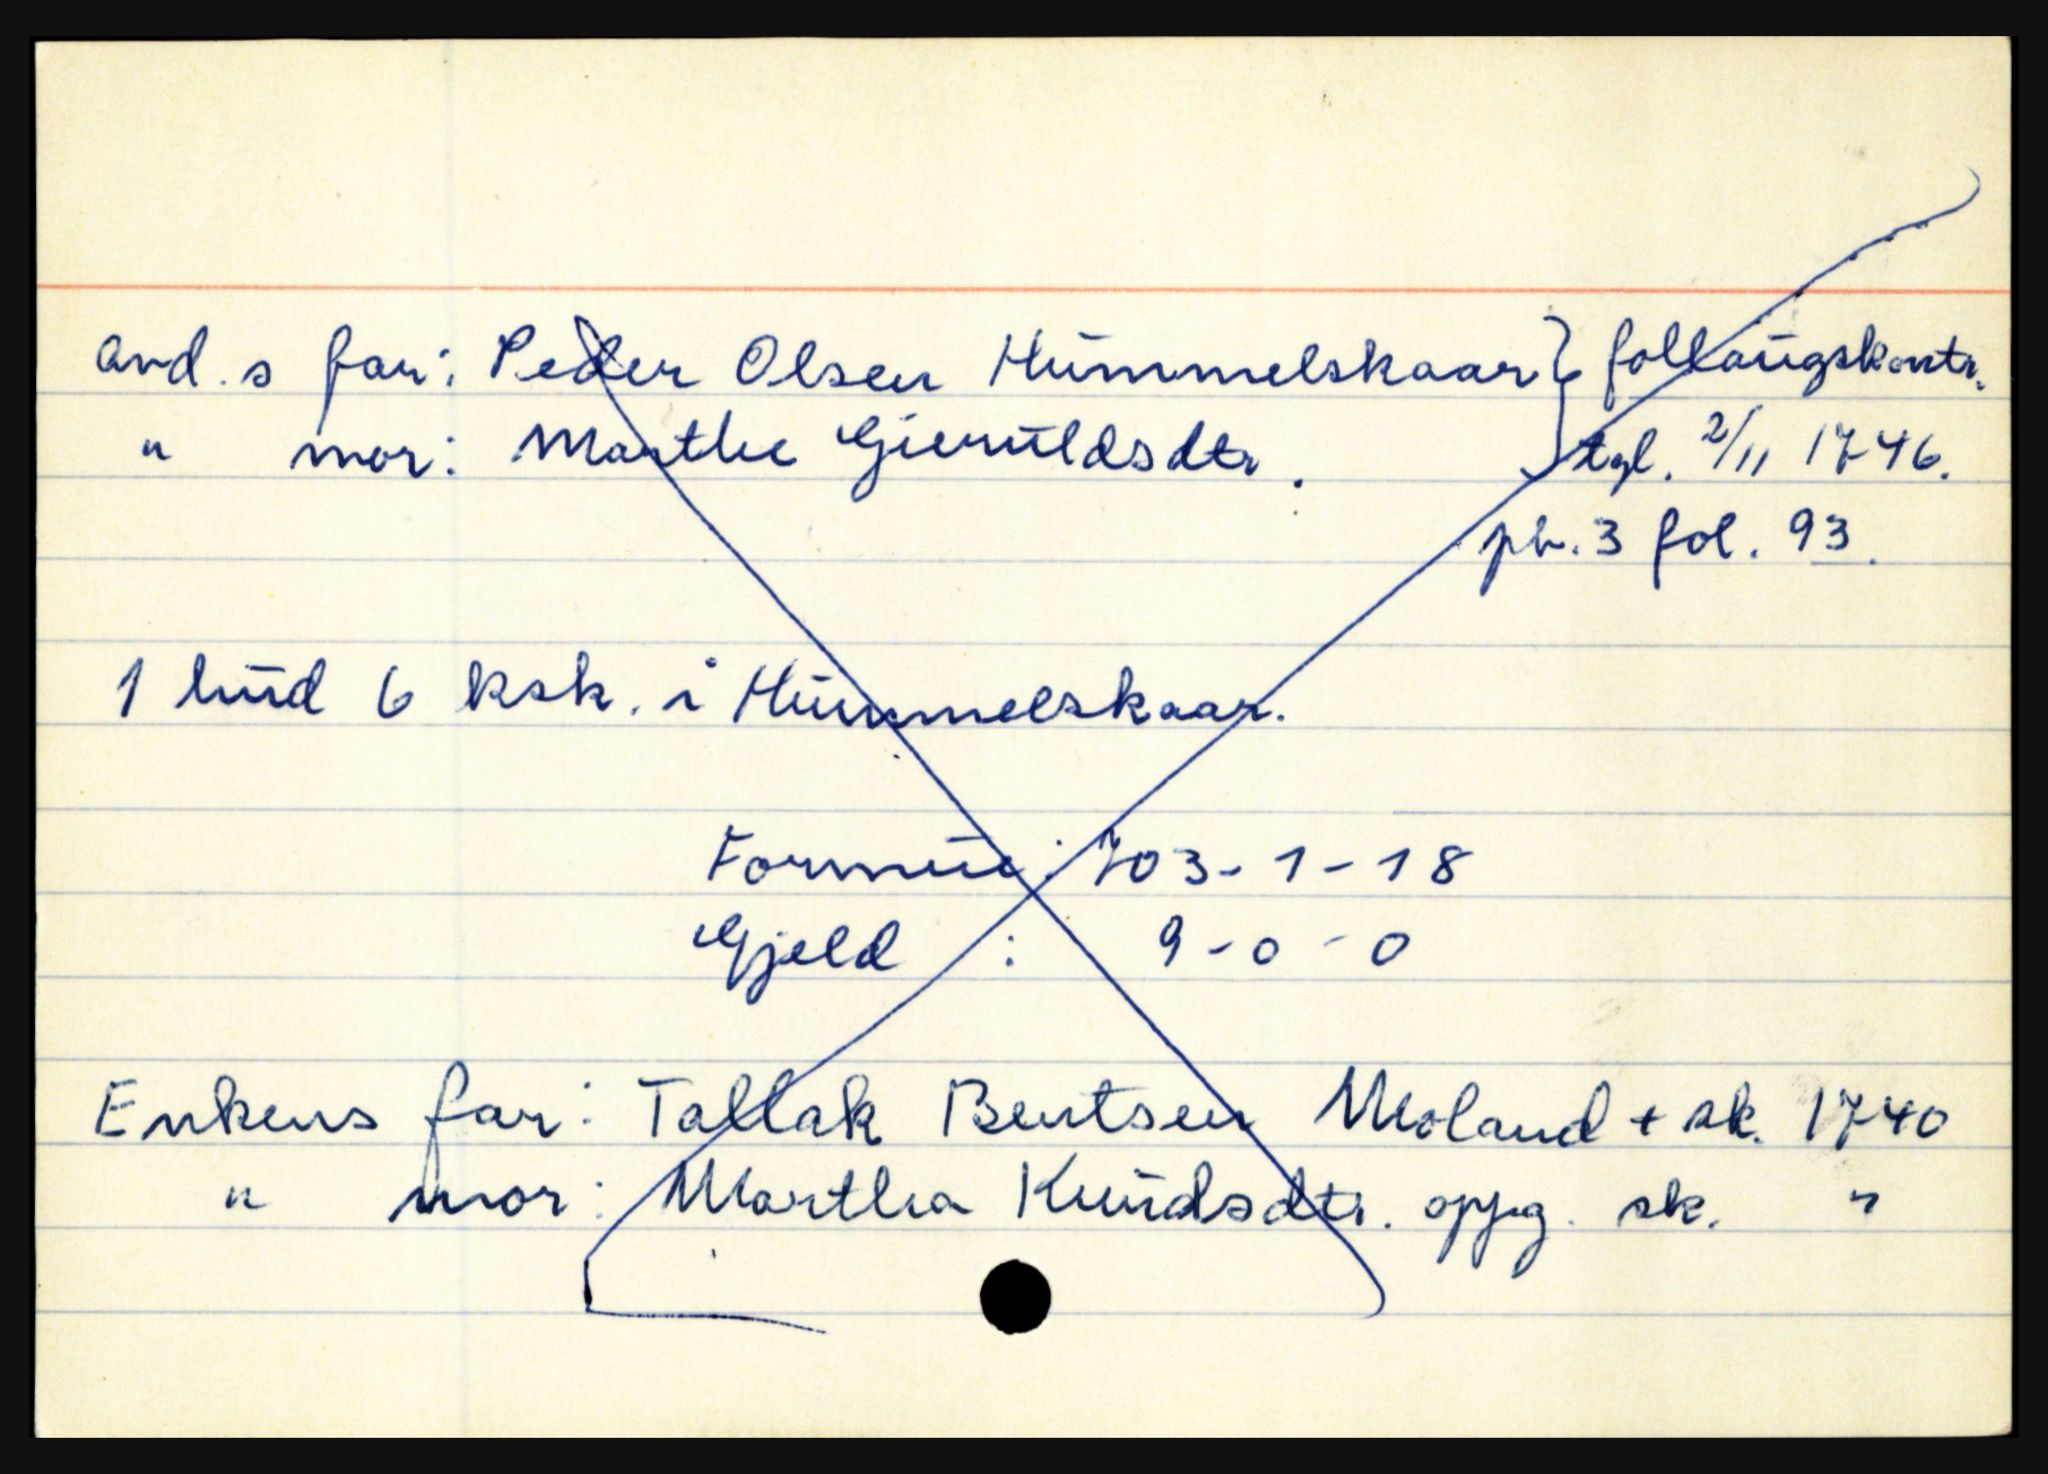 avd.s far: Peder Olsen Hummelskaar } follaugskontr.
" mor: Marthe Gieruldsdtr. tgl. 2/11 1746.
pb. 3 fol. 93.
1 hud 6 ksk. i Hummelskaar.
Formue: 703-1-18
Gjeld : 9-0-0
Enkens far: Tallak Bentsen Moland + sk. 1740
" mor: Martha Knudsdtr. oppg. sk. "